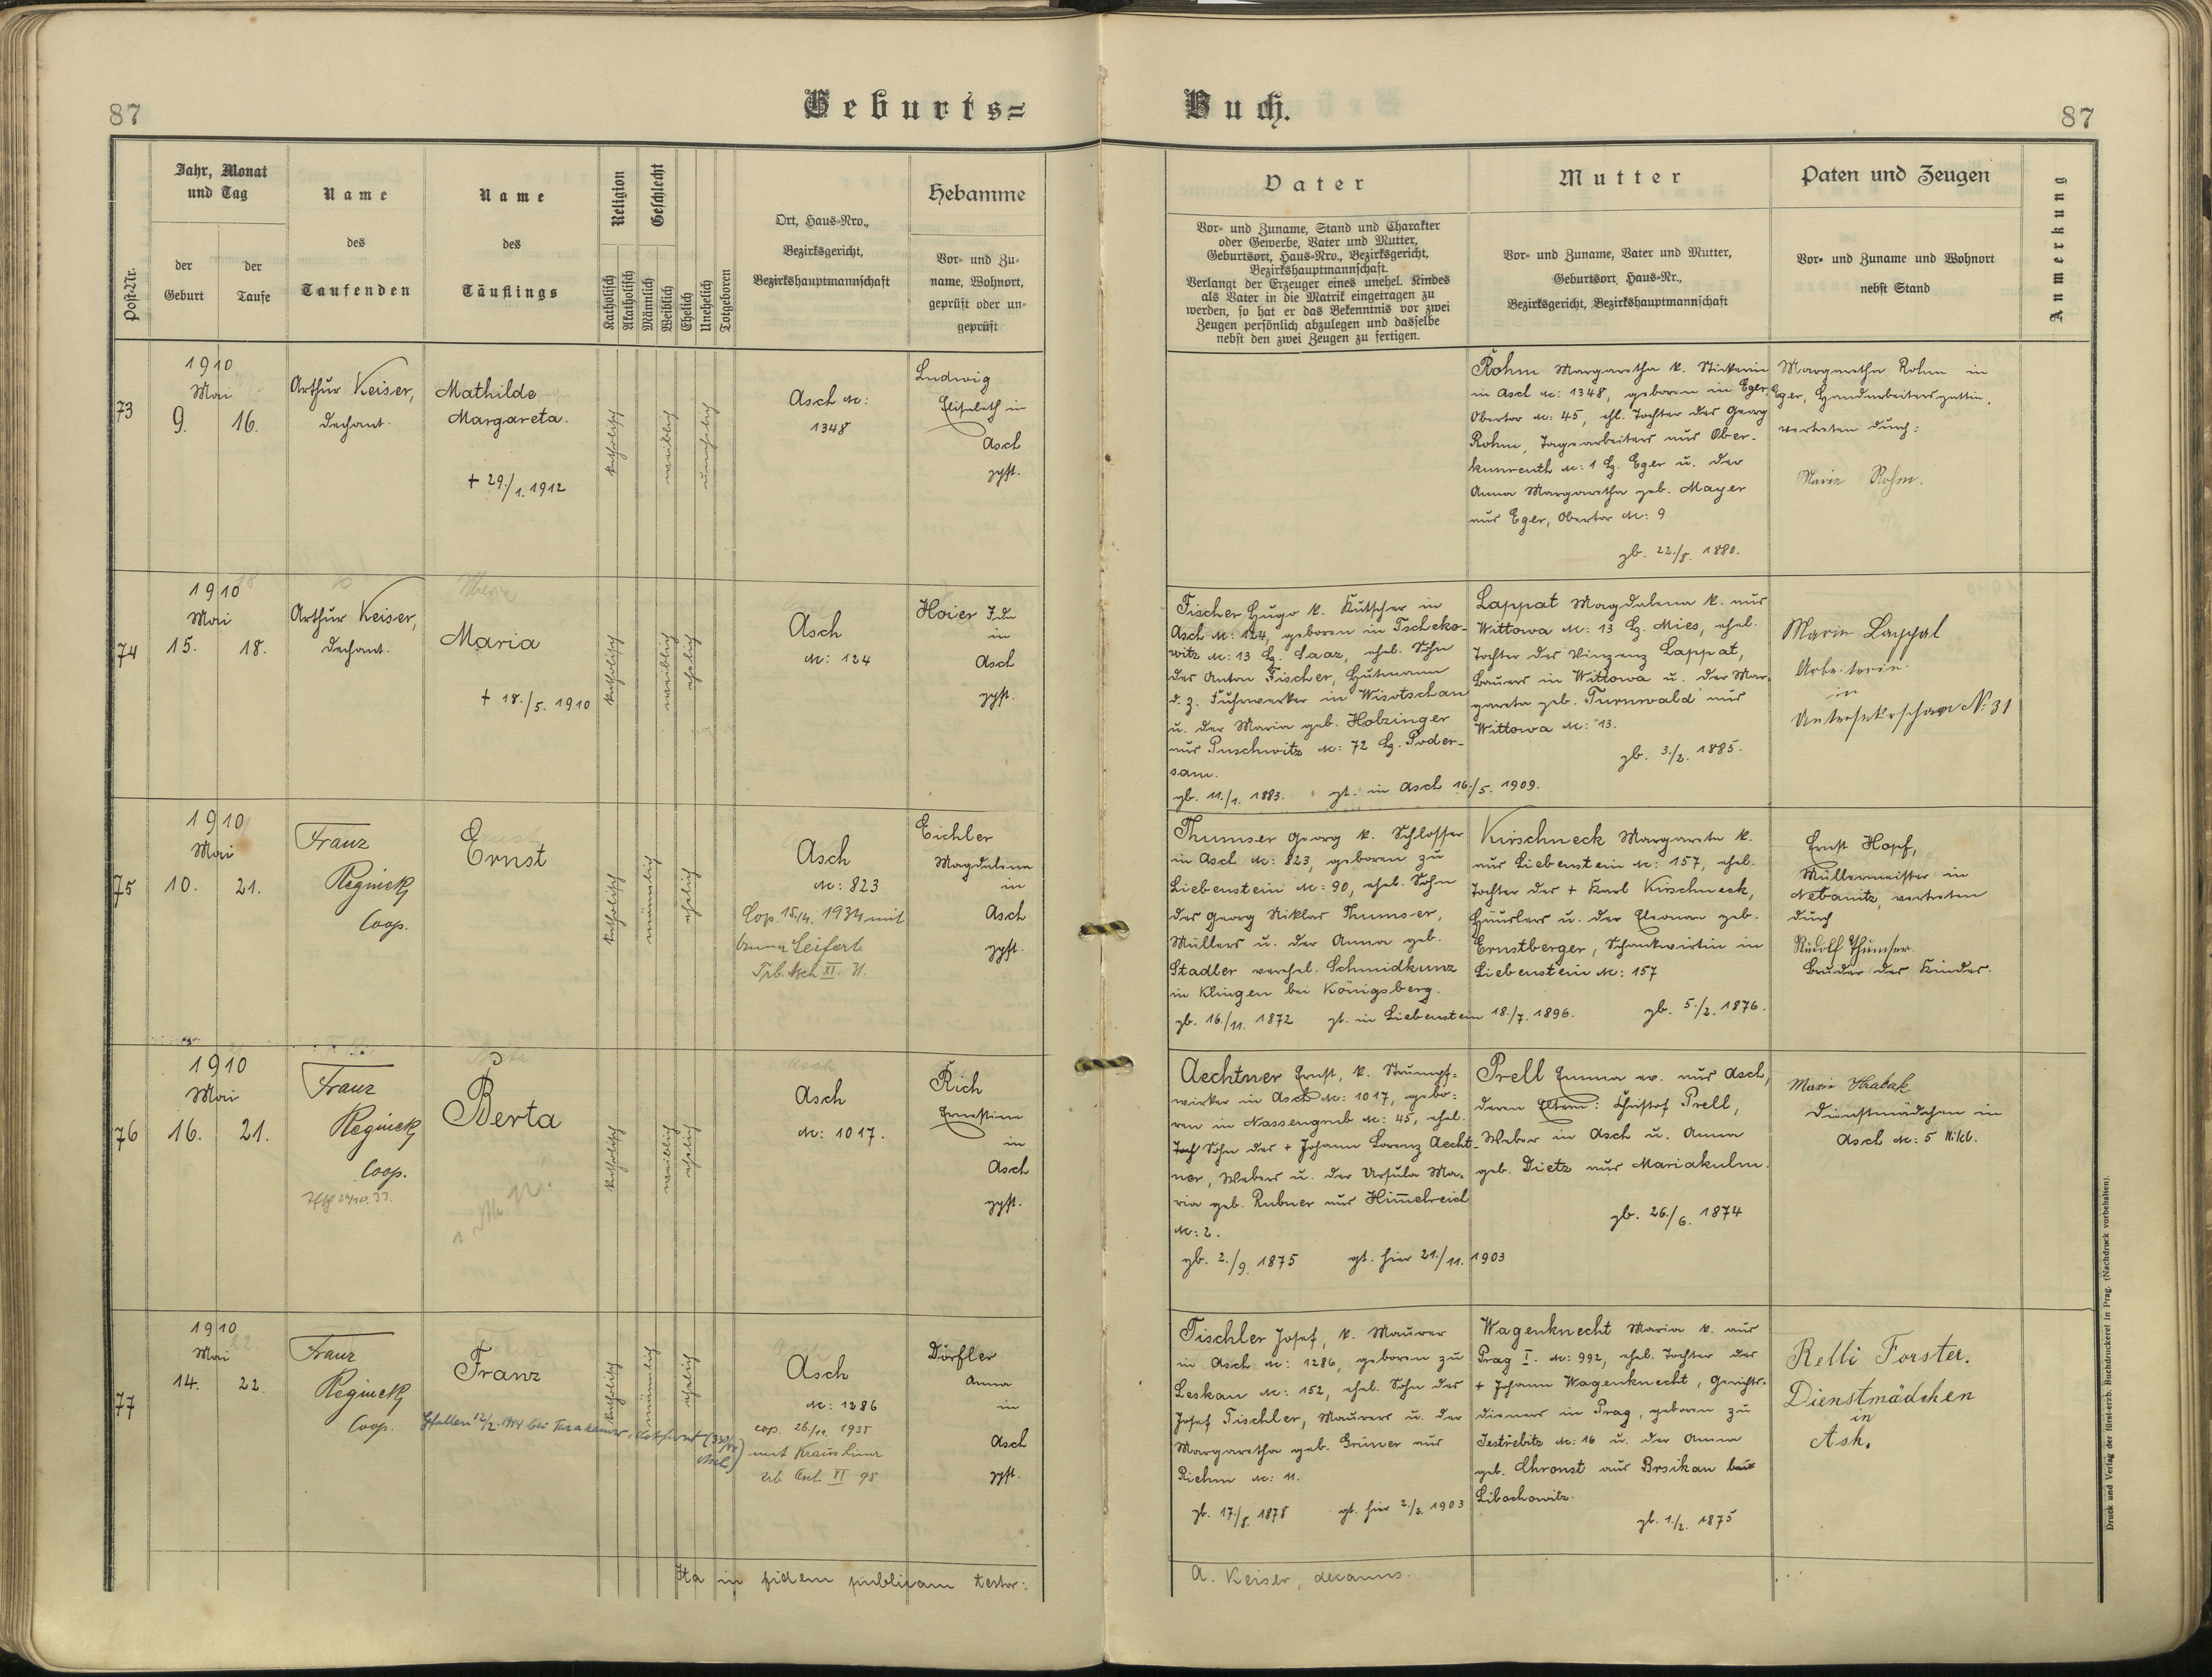 87
Geburts=
Buch.
87
Post-Nr.
Jahr, Monat
und Tag
der
Geburt
der
Taufe
Name
des
Taufenden
Name
des
Täuflings
Religion
Katholisch
Akatholisch
Geschlecht
Männlich
Weiblich
Ehelich
Unehelich
Totgeboren
Ort, Haus-Nro.,
Bezirksgericht,
Bezirkshauptmannschaft
Hebamme
Vor- und Zu-
name, Wohnort,
geprüft oder un-
geprüft
Vater
Vor- und Zuname, Stand und Charakter
oder Gewerbe, Vater und Mutter,
Geburtsort, Haus-Nro., Bezirksgericht,
Bezirkshauptmannschaft.
Verlangt der Erzeuger eines unehel. Kindes
als Vater in die Matrik eingetragen zu
werden, so hat er das Bekenntnis vor zwei
Zeugen persönlich abzulegen und dasselbe
nebst den zwei Zeugen zu fertigen.
Mutter
Vor- und Zuname, Vater und Mutter,
Geburtsort, Haus-Nr.,
Bezirksgericht, Bezirkshauptmannschaft
Paten und Zeugen
Vor- und Zuname und Wohnort
nebst Stand
Anmerkung
73
1910
Mai
9. 16.
Arthur Keiser,
Dechant.
Mathilde
Margareta.
+ 29./1. 1912
katholisch
weiblich
unehelich
Asch N:
1348
Ludwig
Elisabeth in
Asch
gpft.
Rohm Margaretha k. Stickerin
in Asch N: 1348, geboren in Eger,
Obertor N: 45, ehl. Tochter des Georg
Rohm, Tagearbeiters aus Ober-
kunreuth N: 1 B. Eger u. der
Anna Margaretha geb. Mayer
aus Eger, Obertor N: 9
gb. 22./8. 1880.
Margaretha Rohm in
Eger, Handarbeitersgattin,
vertreten durch:
Marie Rohm.
74
1910
Mai
15. 18.
Arthur Keiser,
Dechant.
Maria
+ 18./5. 1910
katholisch
weiblich
ehelich
Asch
N: 124
Hoier Ida
in
Asch
gpft.
Fischer Hugo k. Kutscher in
Asch N: 124, geboren in Tscheko-
witz N: 13 B. Saaz, ehel. Sohn
des Anton Fischer, Hutmann
d. z. Fuhrwerker in Wisotschan
u. der Maria geb. Holzinger
aus Puschwitz N: 72 B. Poder-
sam.
gb. 11./1. 1883. gt. in Asch 16./5. 1909.
Lappat Magdalena k. aus
Wittowa N: 13 B. Mies, ehel.
Tochter des Vinzenz Lappat,
Bauers in Wittowa u. der Mar-
gareta geb. Turnwald aus
Wittowa N: 13.
gb. 3./2. 1885.
Marie Lappat
Arbeiterin
in
75
1910
Mai
10. 21.
Franz
Reginek
Coop.
Ernst
katholisch
männlich
ehelich
Asch
N: 823
Cop. 15/4. 1934 mit
Seifert
Trb. Asch XI. 31.
Eichler
Magdalena
in
Asch
gpft.
Thumser Georg k. Schlosser
in Asch N: 823, geboren zu
Liebenstein N: 90, ehel. Sohn
des Georg Niklas Thumser,
Müllers u. der Anna geb.
Stadler verehel. Schmidkunz
in Klingen bei Königsberg.
gb. 16./11. 1872 gt. in Liebenstein 18./7. 1896.
Kirschneck Margareta k.
aus Liebenstein N: 157, ehel.
Tochter des + Karl Kirschneck,
Häuslers u. der Eleonore geb.
Ernstberger, Schankwirtin in
Liebenstein N: 157
gb. 5./2. 1876.
Ernst Hopf,
Müllermeister in
Nebanitz, vertreten
durch
Rudolf Thumser
Bruder des Kindes.
76
1910
Mai
16. 21.
Franz
Reginek
Coop.
Berta
katholisch
weiblich
ehelich
Asch
N: 1017.
Rich
Ernestine
in
Asch
gpft.
Aechtner Ernst, k. Strumpf-
wirker in Asch N: 1017, gebo-
ren in Nassengrub N: 45, ehel.
Sohn des + Johann Lorenz Aecht-
ner, Webers u. der Ursula Ma-
ria geb. Rubner aus Himmelreich
N: 2.
gb. 2./9. 1875 gt. hier 21./11. 1903
Prell Emma ev. aus Asch,
deren Eltern: Christof Prell,
Weber in Asch u. Anna
geb. Dietz aus Mariakulm.
gb. 26./6. 1874
Marie Hrabak
Dienstmädchen in
Asch N: 5 Nikl.
77
1910
Mai
14. 22.
Franz
Reginek
Coop.
Franz
Gefallen 12/2. 1944 bei
katholisch
männlich
ehelich
Asch
N: 1286
cop. 26/11. 1935
mit Kraus Lina
trb. Asch XI 98
Dörfler
Anna
in
Asch
gpft.
Tischler Josef, k. Maurer
in Asch N: 1286, geboren zu
Leskau N: 152, ehel. Sohn des
Josef Tischler, Maurers u. der
Margaretha geb. Grüner aus
Richm N: 11.
gb. 17./8. 1878 gt. hier 2./2. 1903
Wagenknecht Maria k. aus
Prag I. N: 992, ehel. Tochter des
+ Johann Wagenknecht, Gerichts-
dieners in Prag, geboren zu
Jestřebitz N: 16 u. der Anna
geb. Chronst aus Brsikau bei
Libochowitz.
gb. 1./2. 1875
Relli Forster.
Dienstmädchen
in
Ash.
Ita in fidem publicam testor:
A. Keiser, decanus.
Druck und Verlag der fürst-erzb. Buchdruckerei in Prag. (Nachdruck vorbehalten).